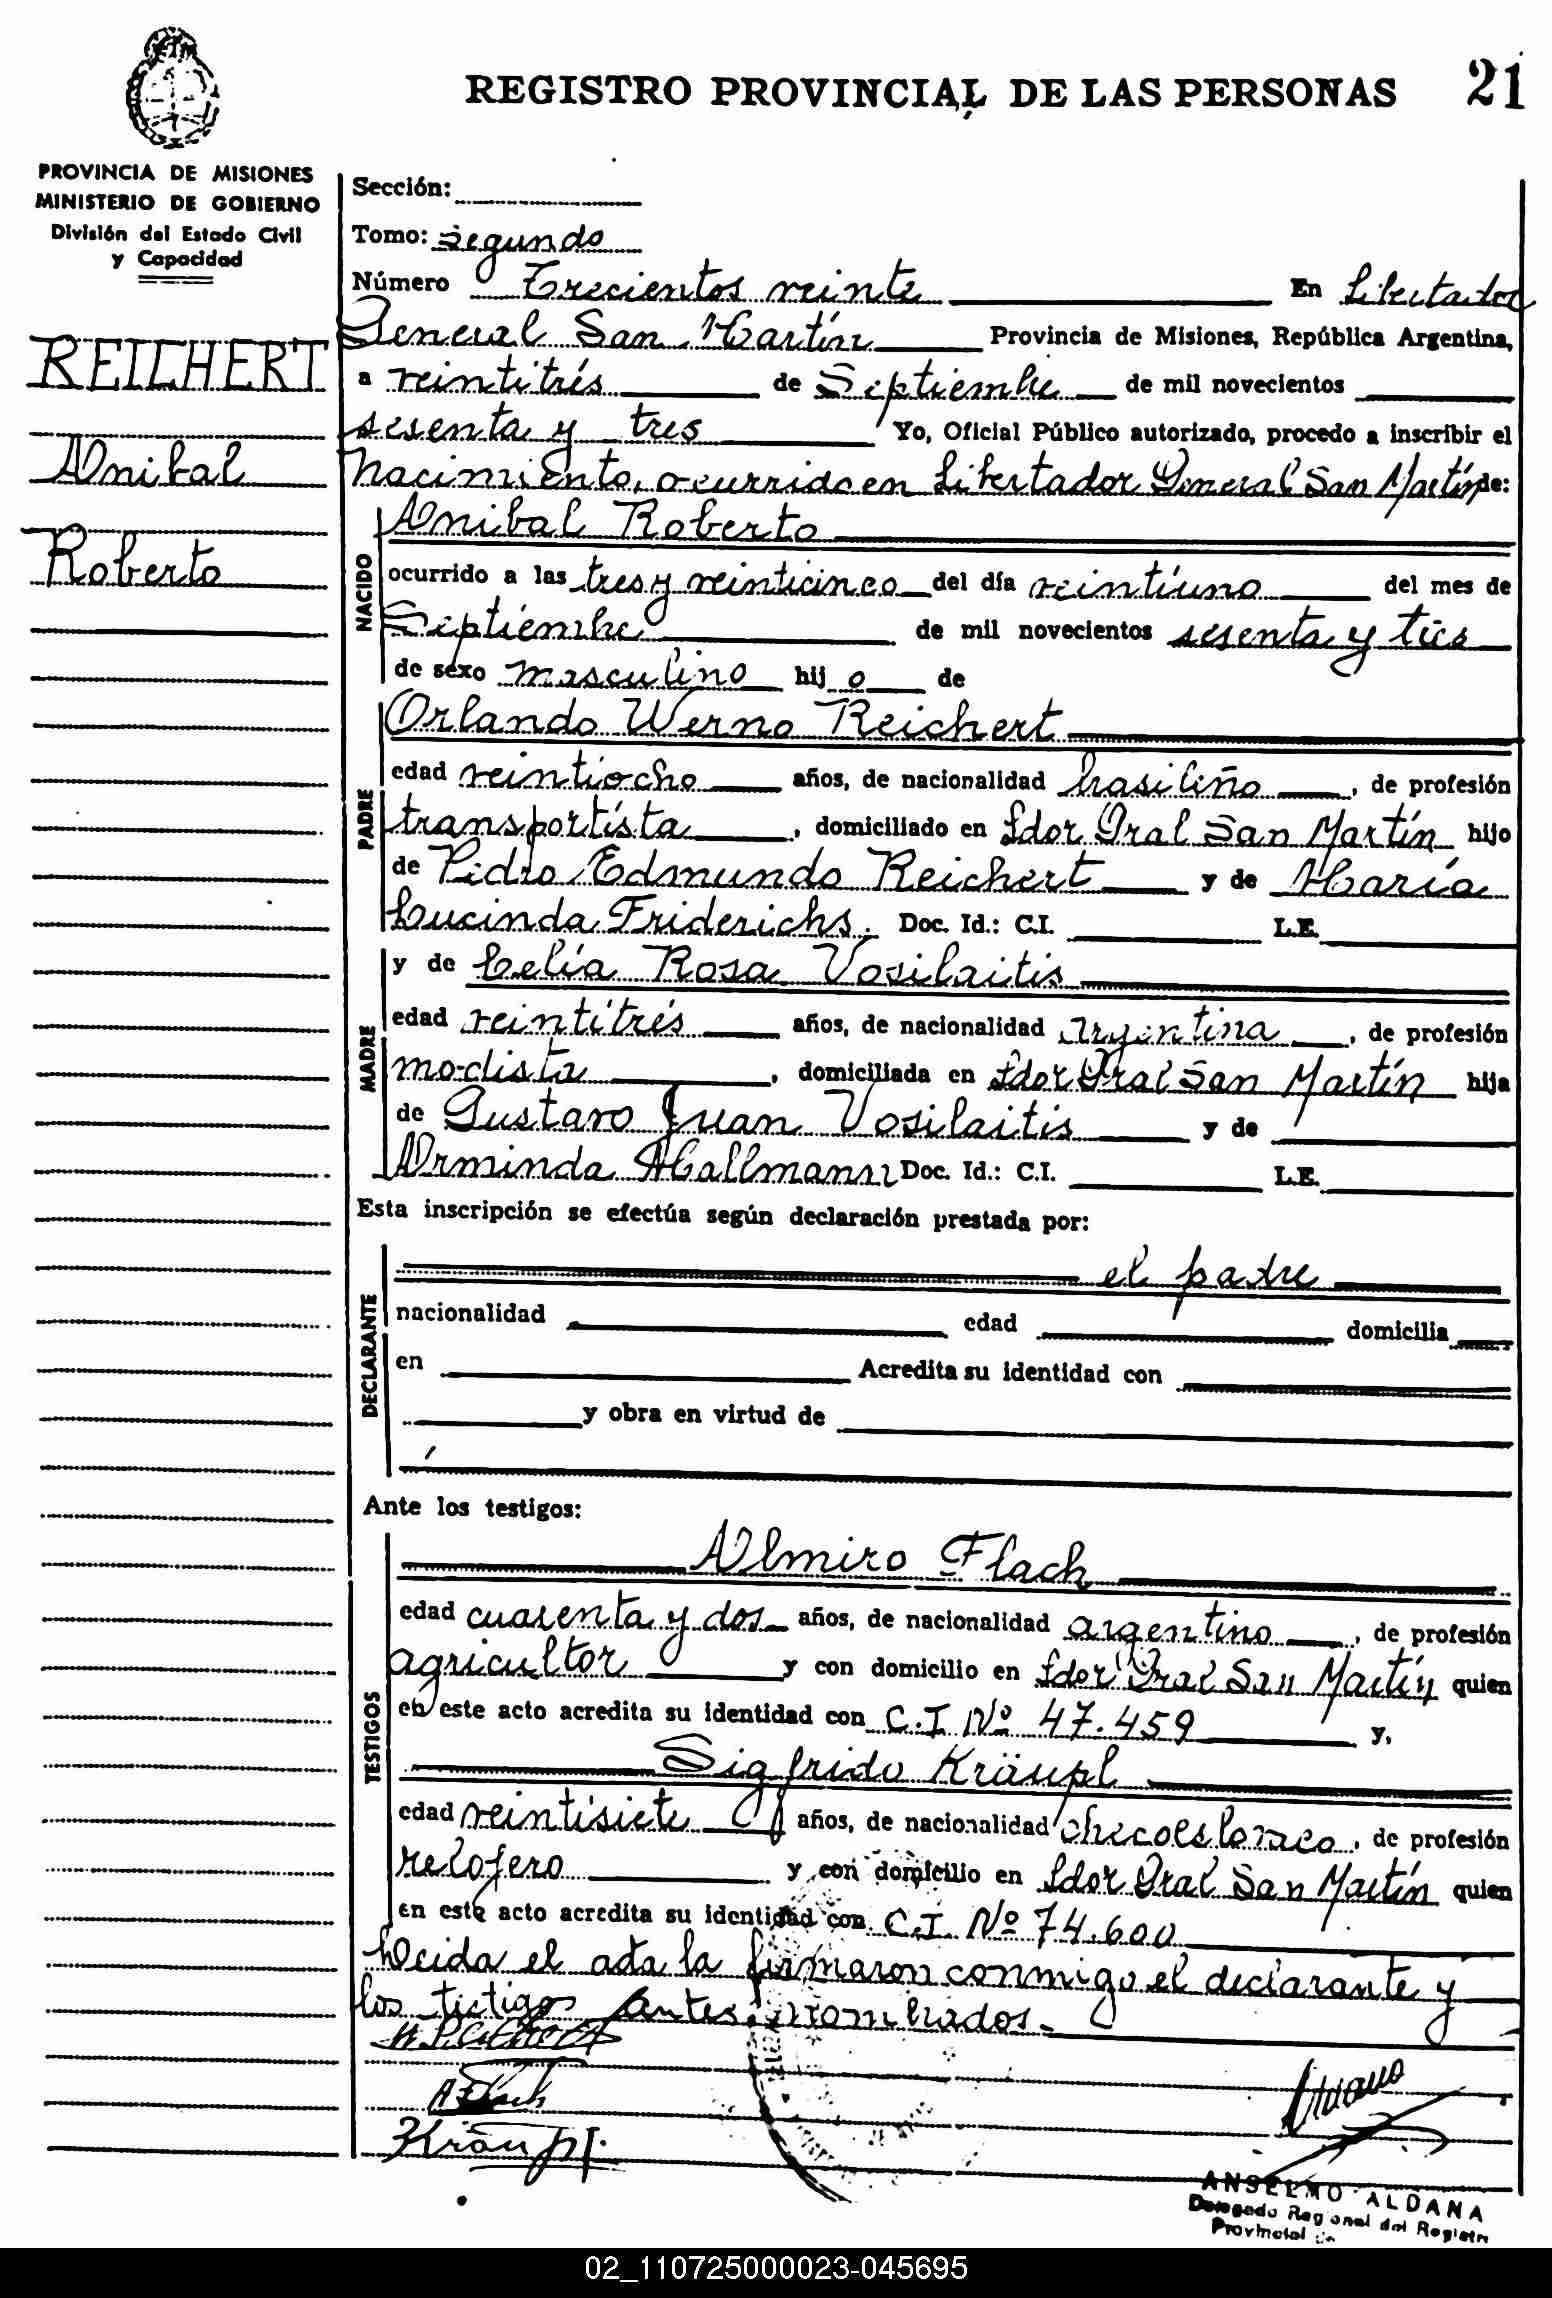 REGISTRO PROVINCIAL DE LAS PERSONAS 21
PROVINCIA DE MISIONES
MINISTERIO DE GOBIERNO
División del Estado Civil
y Capacidad
REICHERT
Anibal
Roberto
Sección:
Tomo: segundo
Número Trecientos veinte En Libertador
General San Martín Provincia de Misiones, República Argentina,
a veintitrés de Septiembre de mil novecientos
sesenta y tres Yo, Oficial Público autorizado, procedo a inscribir el
nacimiento, ocurrido en Libertador General San Martín de:
NACIDO
Anibal Roberto
ocurrido a las tres y veinticinco del día veintíuno del mes de
Septiémbre de mil novecientos sesenta y tres
de sexo masculino hijo de
PADRE
Orlando Werno Reichert
edad veintiocho años, de nacionalidad brasileño, de profesión
transportista, domiciliado en Ldor Gral San Martín hijo
de Pedro Edmundo Reichert y de María
Lucinda Friderichs. Doc. Id.: C.I. L.E.
MADRE
y de Celia Rosa Vosilaitis
edad veintitrés años, de nacionalidad argentina, de profesión
modista, domiciliada en Ldor Gral San Martín hija
de Gustavo Juan Vosilaitis y de
Arminda Hallmann Doc. Id.: C.I. L.E.
Esta inscripción se efectúa según declaración prestada por:
DECLARANTE
el padre
nacionalidad edad domicilia
en Acredita su identidad con
y obra en virtud de
Ante los testigos:
TESTIGOS
Almiro Flach
edad cuarenta y dos años, de nacionalidad argentino, de profesión
agricultor y con domicilio en Ldor Gral San Martín quien
en este acto acredita su identidad con C.I Nº 47.459 y,
Sigfrido Kräupl
edad veintisiete años, de nacionalidad checoeslovaco, de profesión
relojero y con domicilio en Ldor Gral San Martín quien
en este acto acredita su identidad con C.I. Nº 74.600
Leida el acta la firmaron conmigo el declarante y
los testigos antes nombrados.-
A Flach
Kräupl
ANSELMO ALDANA
Delegado Regional del Registro
Provincial de
02_110725000023-045695